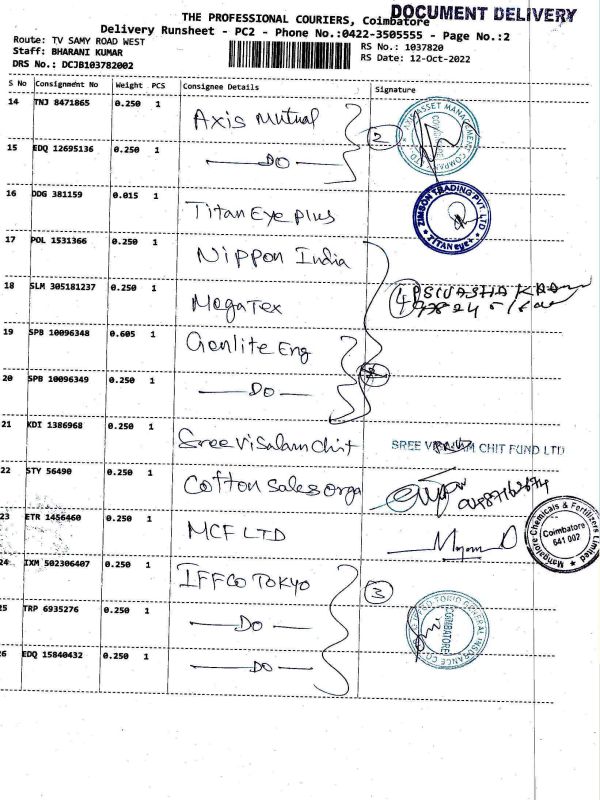 DOCUMENT DELIVERY
THE PROFESSIONAL COURIERS, Coimbatore
Delivery Runsheet - PC2 - Phone No.:0422-3505555 - Page No.:2
Route: TV SAMY ROAD WEST
RS No.: 1037820
Staff: BHARANI KUMAR
RS Date: 12-Oct-2022
DRS No.: DCJB103782002
S No Consignment No Weight PCS Consignee Details Signature
14 TNJ 8471865 0.250 1 Axis Mutual
2
15 EDQ 12695136 0.250 1 DO
16 DDG 381159 0.015 1 Titan Eye Plus
ZIMSON TRADING PVT. LTD
TITAN eye+
17 POL 1531366 0.250 1 Nippon India
18 SLM 305181237 0.250 1 MegaTex
4
19 SPB 10096348 0.605 1 Genlite Eng
20 SPB 10096349 0.250 1 DO
21 KDI 1386968 0.250 1 Sree Visalam Chit
CHIT FUND LTD
22 STY 56490 0.250 1 Cotton Sales Orga
23 ETR 1456460 0.250 1 MCF LTD
Mangalore Chemicals & Fertilizers Limited
Coimbatore
641 002
24 IXM 502306407 0.250 1 IFFCO TOKYO
3
25 TRP 6935276 0.250 1 DO
COIMBATORE
26 EDQ 15840432 0.250 1 DO